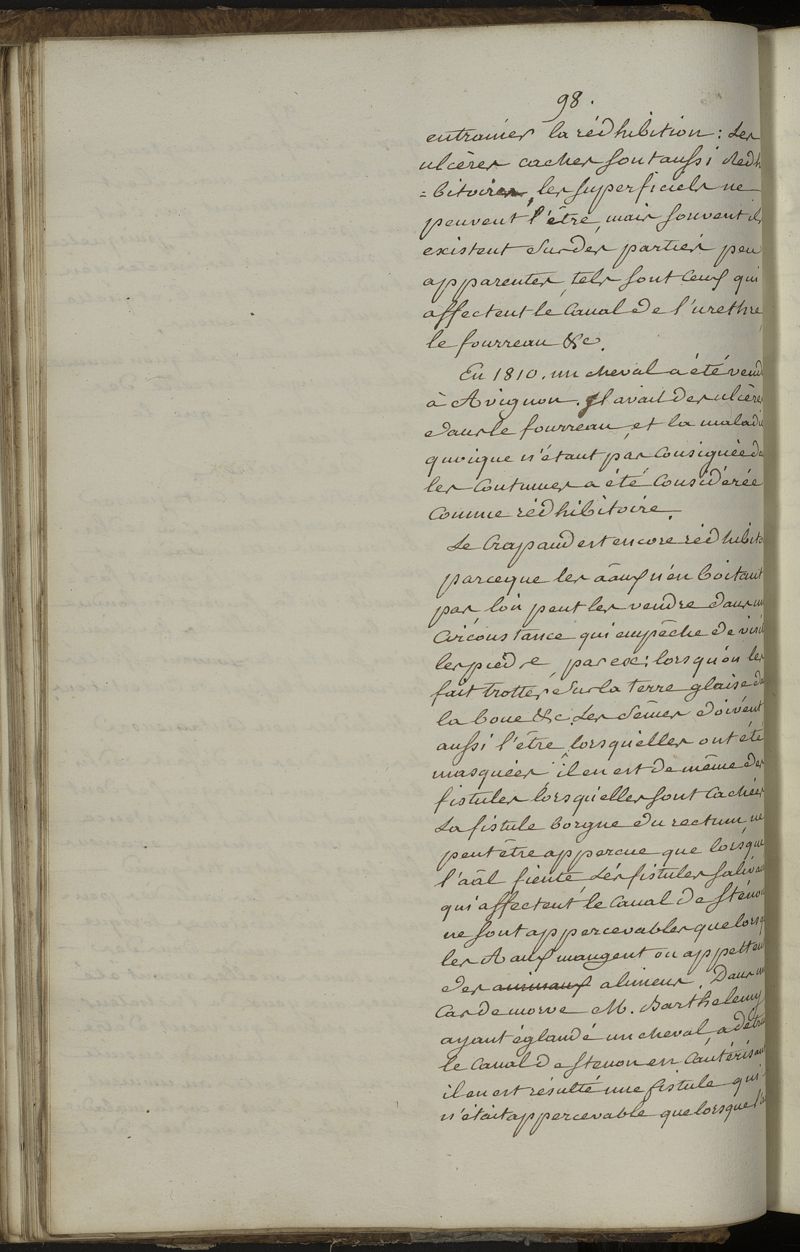 98.
entrainer la rédhibition : Les
ulcères cachés sont aussi Redh
= bitoires, les superficiels ne
peuvent l'être, mais souvent ils
existent sur des parties peu
apparentes, tels sont ceux qui
affectent le Canal de l'urethre,
le fourreau &c.
En 1810. un cheval a été vend
à Avignon. Il avait des ulcères
dans le fourreau, et la maladi
quoique n'étant pas Consignée da
les Coutumes a été Considérée
Comme rédhibitoire.
Le Crapaud est encore rédhibito
parceque les aâux n'en boitant
pas l'on peut les vendre dans un
Circonstance qui empêche de visi
les pieds par ex: lorsqu'on les
fait trotter sur la terre glaise de
la boue &c. Les Seîmes doivent
aussi l'être lorsqu'elles ont été
masquées, il en est de même des
fistules lorsqu'elles sont Cachées
La fistule borgne du rectum ne
peut être apperçue que lorsque
l'aâl fiente. Les fistules saliva
qui affectent le Canal de Sténon
ne sont appercevables que lorsq
les Aaux mangent ou appettent
des animaux alimens. Dans un
Cas de morve M. Barthelemy
ayant églandé un cheval, a détru
le Canal de Stenon en Cautérisant
il en est résulté une fistule qui
n'était appercevable que lorsque l'a